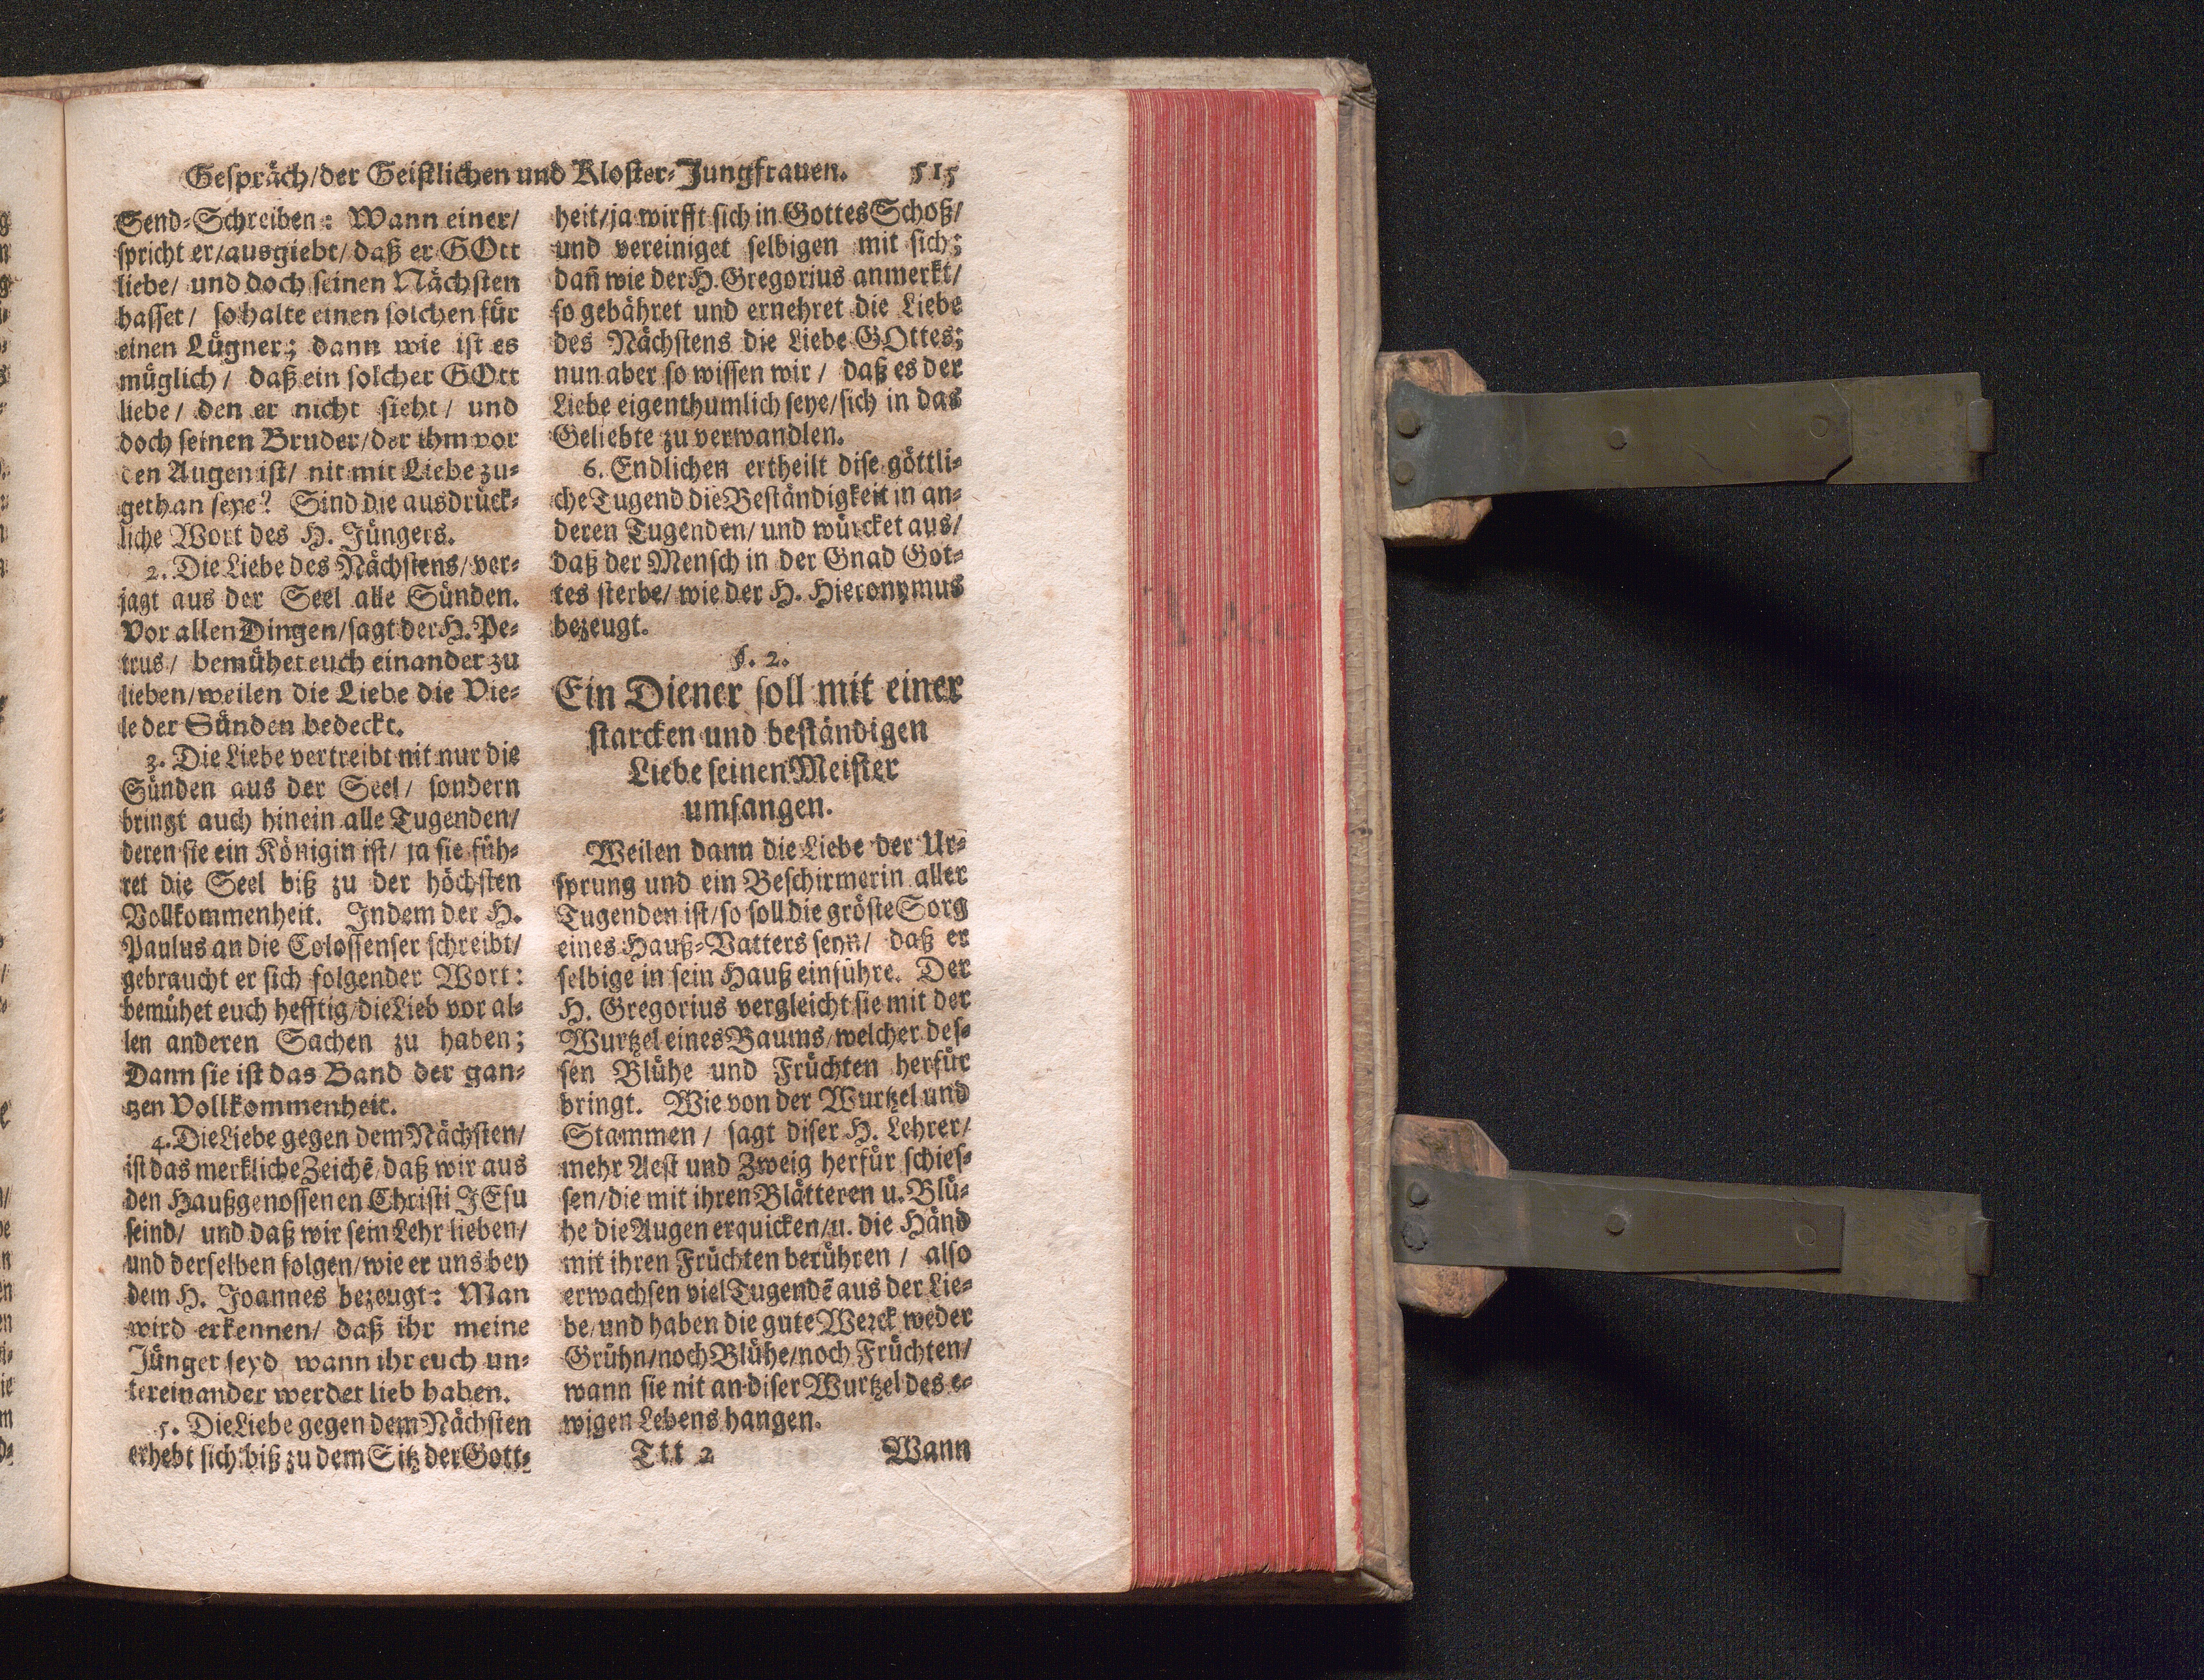 Gespräch/der Geistlichen und Kloster-Jungfrauen. 515
Send-Schreiben: Wann einer/
spricht er/ausgiebt/ daß er GOtt
liebe/ und doch seinen Nächsten
hasset/ so halte einen solchen für
einen Lügner; dann wie ist es
müglich/ daß ein solcher GOtt
liebe/ den er nicht sieht/ und
doch seinen Bruder/der ihm vor
den Augen ist/ nit mit Liebe zu-
gethan seye? Sind die ausdrück-
liche Wort des H. Jüngers.
2. Die Liebe des Nächstens/ ver-
jagt aus der Seel alle Sünden.
Vor allen Dingen/sagt der H. Pe-
trus/ bemühet euch einander zu
lieben/weilen die Liebe die Vie-
le der Sünden bedeckt.
3. Die Liebe vertreibt nit nur die
Sünden aus der Seel/ sondern
bringt auch hinein alle Tugenden/
deren sie ein Königin ist/ ja sie füh-
ret die Seel biß zu der höchsten
Vollkommenheit. Indem der H.
Paulus an die Colossenser schreibt/
gebraucht er sich folgender Wort:
bemühet euch hefftig/die Lieb vor al-
len anderen Sachen zu haben;
Dann sie ist das Band der gan-
tzen Vollkommenheit.
4. Die Liebe gegen dem Nächsten/
ist das merkliche Zeichẽ/ daß wir aus
den Haußgenossenen Christi JEsu
seind/ und daß wir sein Lehr lieben/
und derselben folgen/wie er uns bey
dem H. Joannes bezeugt: Man
wird erkennen/ daß ihr meine
Jünger seyd wann ihr euch un-
tereinander werdet lieb haben.
5. Die Liebe gegen dem Nächsten
erhebt sich biß zu dem Sitz der Gott-
heit/ja wirfft sich in Gottes Schoß/
und vereiniget selbigen mit sich;
dañ wie der H. Gregorius anmerkt/
so gebähret und ernehret die Liebe
des Nächstens die Liebe GOttes;
nun aber so wissen wir/ daß es der
Liebe eigenthumlich seye/sich in das
Geliebte zu verwandlen.
6. Endlichen ertheilt dise göttli-
che Tugend die Beständigkeit in an-
deren Tugenden/ und würcket aus/
daß der Mensch in der Gnad Got-
tes sterbe/ wie der H. Hieronymus
bezeugt.
§. 2.
Ein Diener soll mit einer
starcken und beständigen
Liebe seinen Meister
umfangen.
Weilen dann die Liebe der Ur-
sprung und ein Beschirmerin aller
Tugenden ist/so soll die gröste Sorg
eines Hauß-Vatters seyn/ daß er
selbige in sein Hauß einführe. Der
H. Gregorius vergleicht sie mit der
Wurtzel eines Baums/welcher des-
sen Blühe und Früchten herfür
bringt. Wie von der Wurtzel und
Stammen/ sagt diser H. Lehrer/
mehr Aest und Zweig herfür schies-
sen/die mit ihren Blätteren u. Blü-
he die Augen erquicken/u. die Händ
mit ihren Früchten berühren/ also
erwachsen viel Tugendẽ aus der Lie-
be/und haben die gute Werck weder
Grühn/noch Blühe/noch Früchten/
wann sie nit an diser Wurtzel des e-
wigen Lebens hangen.
Ttt 2 Wann